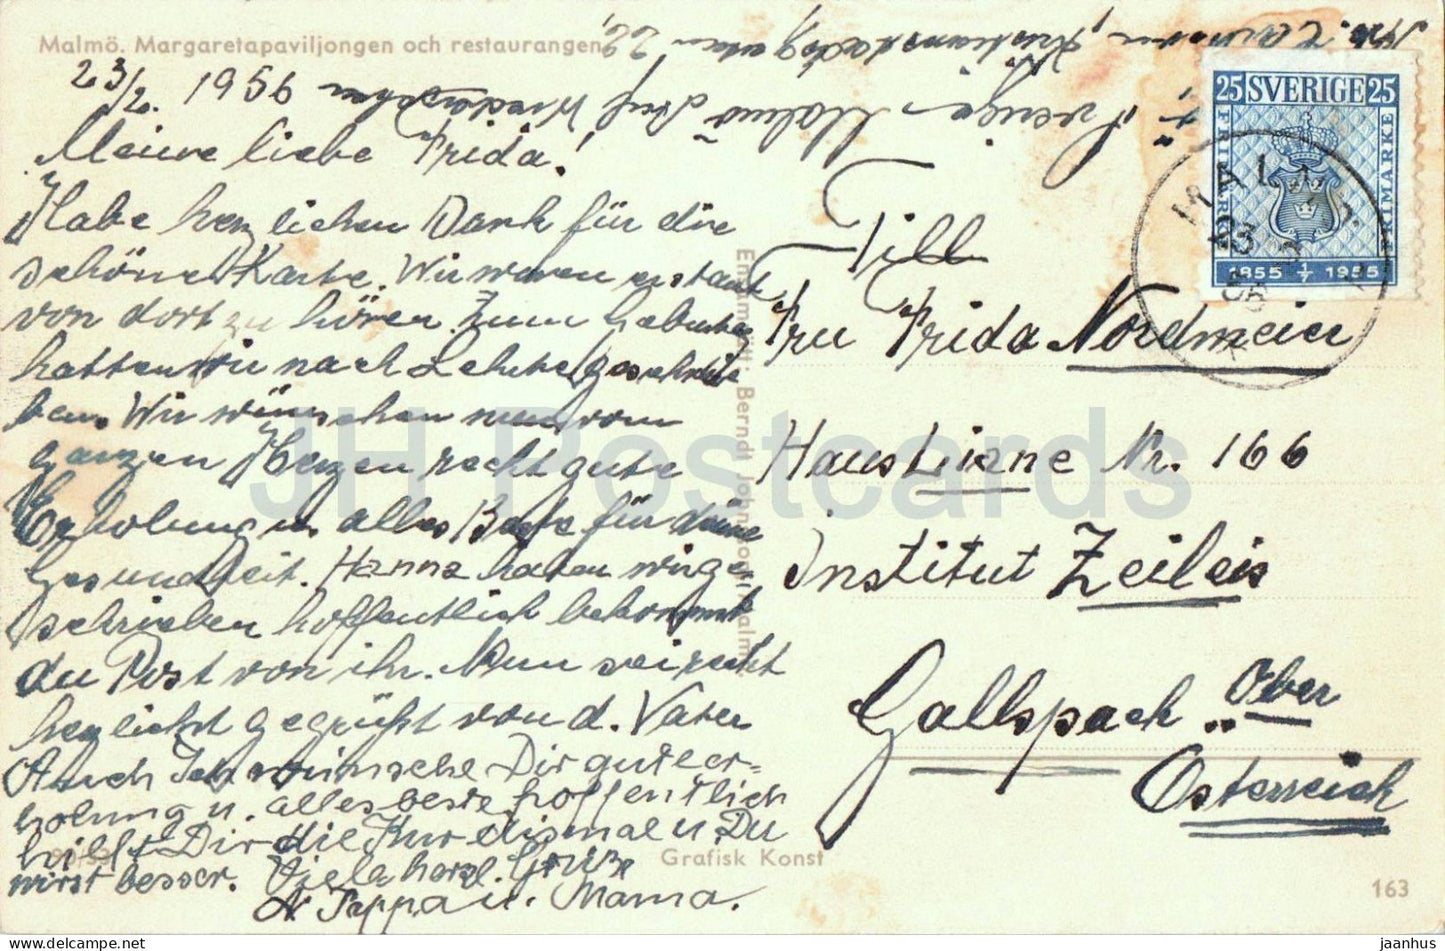 Malmö. Margaretapaviljongen och restaurangen
23/2. 1956
Meine liebe Frida!
Habe herzlichen Dank für die
schöne Karte. Wir waren erstaunt
von dort zu hören. Zum Geburtstag
hatten wir nach Lehrte geschrie
ben. Wir wünschen nun vom
ganzen Herzen recht gute
Erholung u. alles Beste für deine
Gesundheit. Hanna haben wir ge
schrieben hoffentlich bekommst
du Post von ihr. Nun sei recht
herzlichst gegrüßt von d. Vater
Auch Ich wünsche Dir gute er-
holung u. alles beste hoffentlich
hilft Dir die Kur diesmal u. Du
wirst besser. Viele herzl. Grüße
Pappa u. Mama.
25 SVERIGE 25
FRIMÄRKE
1855 1/7 1955
Till
Fru Frida Nordmeier
Haus Liane Nr. 166
Institut Zeileis
Gallspach Ober
Österreich
Ensamrätt: Berndt Johnsson, Malmö
Grafisk Konst
163
JH Postcards
jaanhus | delcampe.net